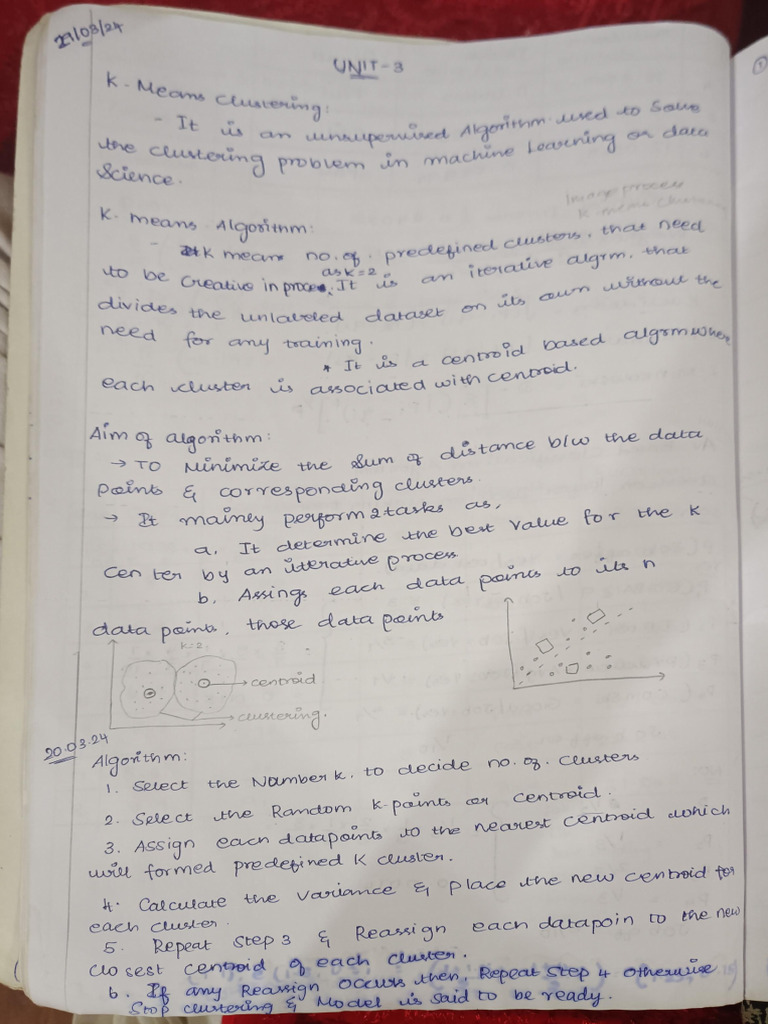 29/03/24
UNIT-3
K-Means clustering:
- It is an unsupervised Algorithm used to Solve
the clustering problem in machine Learning or data
Science.
Image process
K-means
K-means Algorithm:
- K means no. of. predefined clusters, that need
as K=2
to be Creative in proces. It is an iterative algrm, that
divides the unlabeled dataset on its own without the
need for any training.
* It is a centroid based algrm where
each cluster is associated with centroid.
Aim of algorithm:
→ TO Minimize the Sum of distance b/w the data
points & corresponding clusters.
→ It mainly perform 2 tasks as,
a. It determine the best value for the K
Center by an iterative process.
b. Assings each data points to its n
data points, those data points
K=2
centroid
clustering.
20.03.24
Algorithm:
1. Select the Number k. to decide no. of. clusters
2. Select the Random k-points or centroid.
3. Assign each datapoints to the nearest centroid which
will formed predefined K cluster.
4. Calculate the variance & place the new centroid for
each cluster.
5. Repeat Step 3 & Reassign each datapoin to the new
closest centroid of each cluster.
6. If any Reassign occurs then, Repeat Step 4 otherwise
Stop clustering & Model is said to be ready.